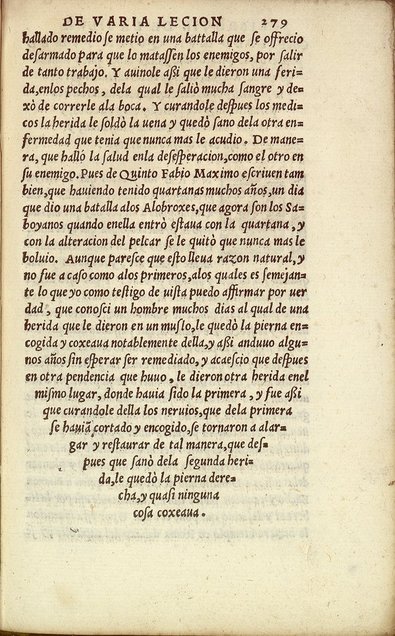 DE VARIA LECION 279
hallado remedio se metio en una battalla que se offrecio
desarmado para que lo matassen los enemigos, por salir
de tanto trabajo. Y auinole aßi que le dieron una feri=
da,enlos pechos, dela qual le saliò mucha sangre y de=
xò de correrle ala boca. Y curandole despues los medi=
cos la herida le soldò la uena y quedò sano dela otra en=
fermedad que tenia que nunca mas le acudio. De mane=
ra, que hallò la salud enla desesperacion,como el otro en
su enemigo.Pues de Quinto Fabio Maximo escriuen tam
bien, que hauiendo tenido quartanas muchos años,un dia
que dio una batalla alos Alobroxes,que agora son los Sa=
boyanos quando enella entrò estaua con la quartana, y
con la alteracion del pelear se le quitò que nunca mas le
boluio. Aunque paresce que esto lleua razon natural, y
no fue a caso como alos primeros,alos quales es semejan=
te lo que yo como testigo de uista puedo affirmar por uer
dad, que conosci un hombre muchos dias al qual de una
herida que le dieron en un muslo,le quedò la pierna en=
cogida y coxeaua notablemente della,y aßi anduuo algu=
nos años sin esperar ser remediado, y acaescio que despues
en otra pendencia que huuo, le dieron otra herida enel
mismo lugar, donde hauia sido la primera, y fue aßi
que curandole della los neruios,que dela primera
se hauiã cortado y encogido,se tornaron a alar=
gar y restaurar de tal manera, que des=
pues que sanò dela segunda heri=
da,le quedò la pierna dere=
cha,y quasi ninguna
cosa coxeaua.